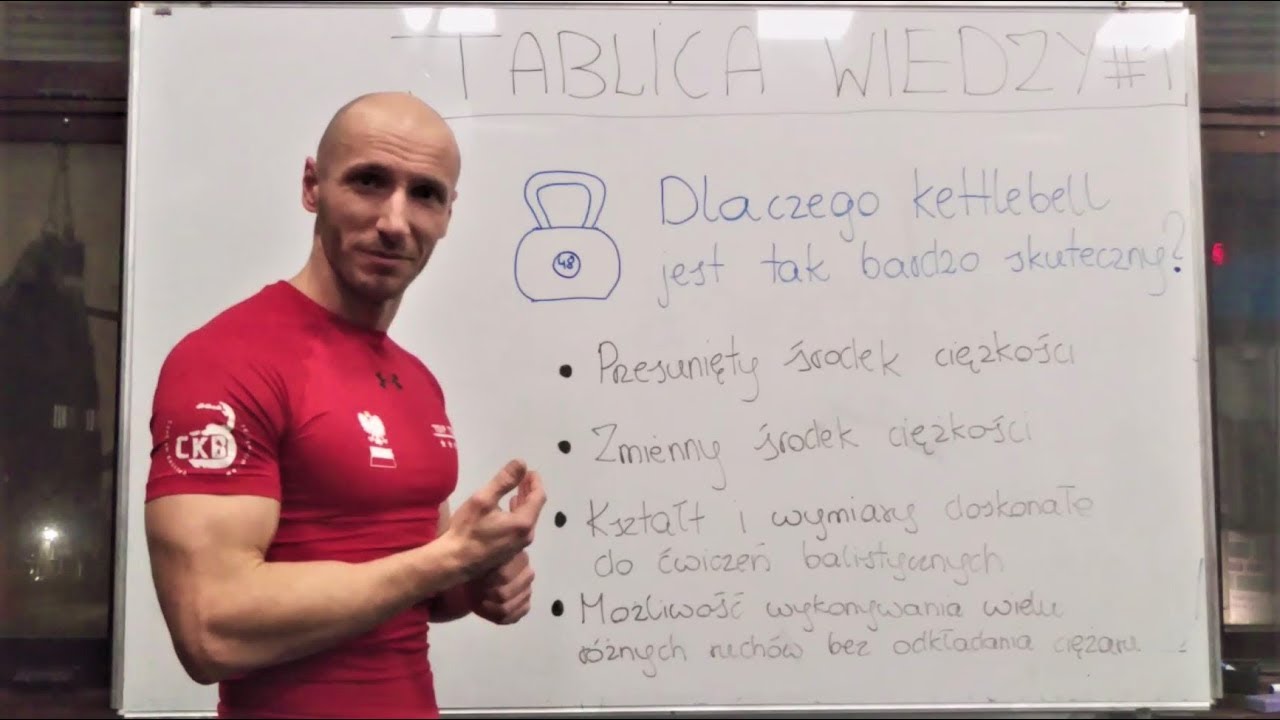 TABLICA WIEDZY #1
Dlaczego kettlebell
jest tak bardzo skuteczny?
48
• Przesunięty środek ciężkości
• Zmienny środek ciężkości
• Kształt i wymiary doskonałe
do ćwiczeń balistycznych
• Możliwość wykonywania wielu
różnych ruchów bez odkładania ciężaru
CKB